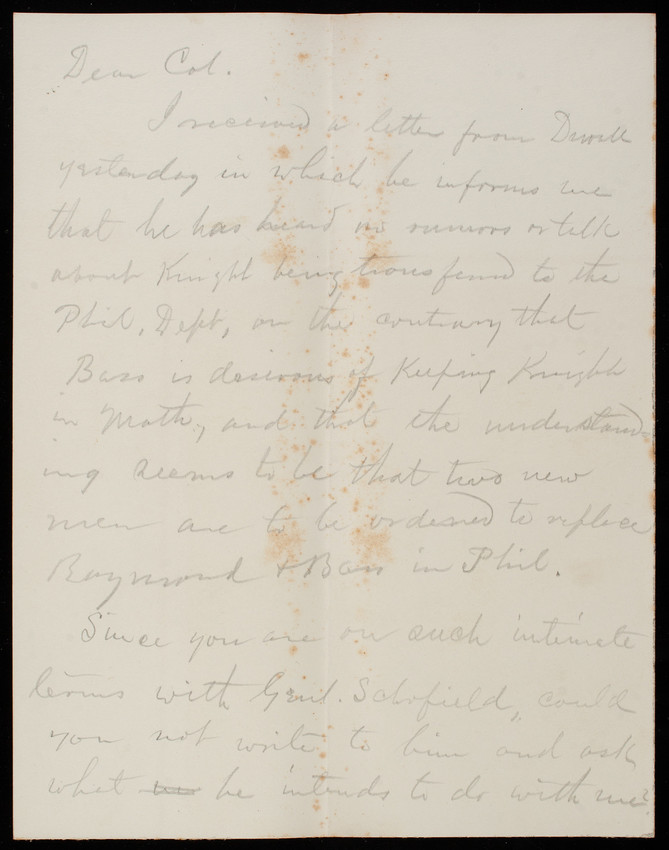 Dear Col.
I received a letter from
yesterday in which he informs me
that he has heard no rumors or talk
about Knight being transferred to the
Phil. Dept, on the contrary that
Bass is desirous of Keeping Knight
in Math., and that the understand-
ing seems to be that two new
men are to be ordered to replace
Raymond & Bass in Phil.
Since you are on such intimate
terms with Genl. Schofield, could
you not write to him and ask
what he intends to do with me?